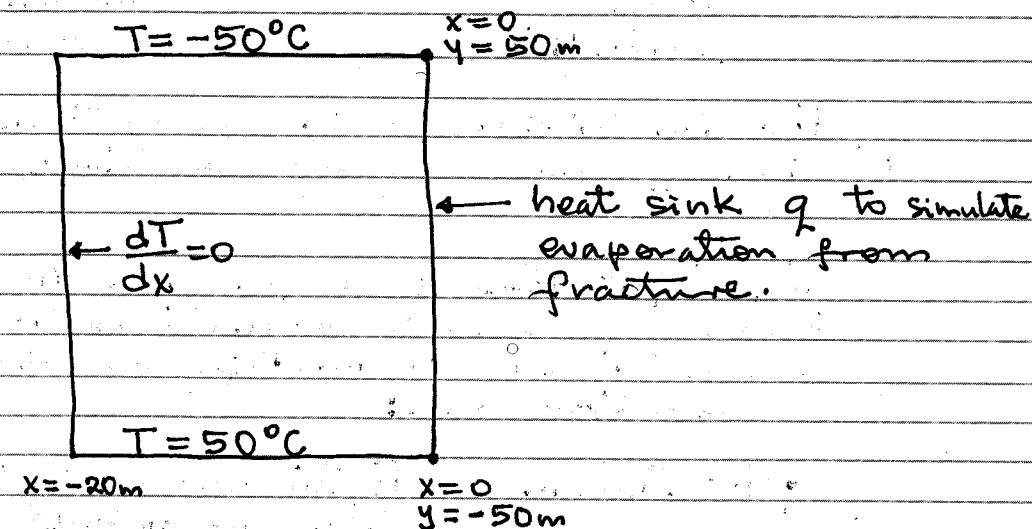 T = -50°C
x = 0
y = 50 m
heat sink q to simulate
evaporation from
fracture.
dT/dx = 0
T = 50°C
x = -20m
x = 0
y = -50m